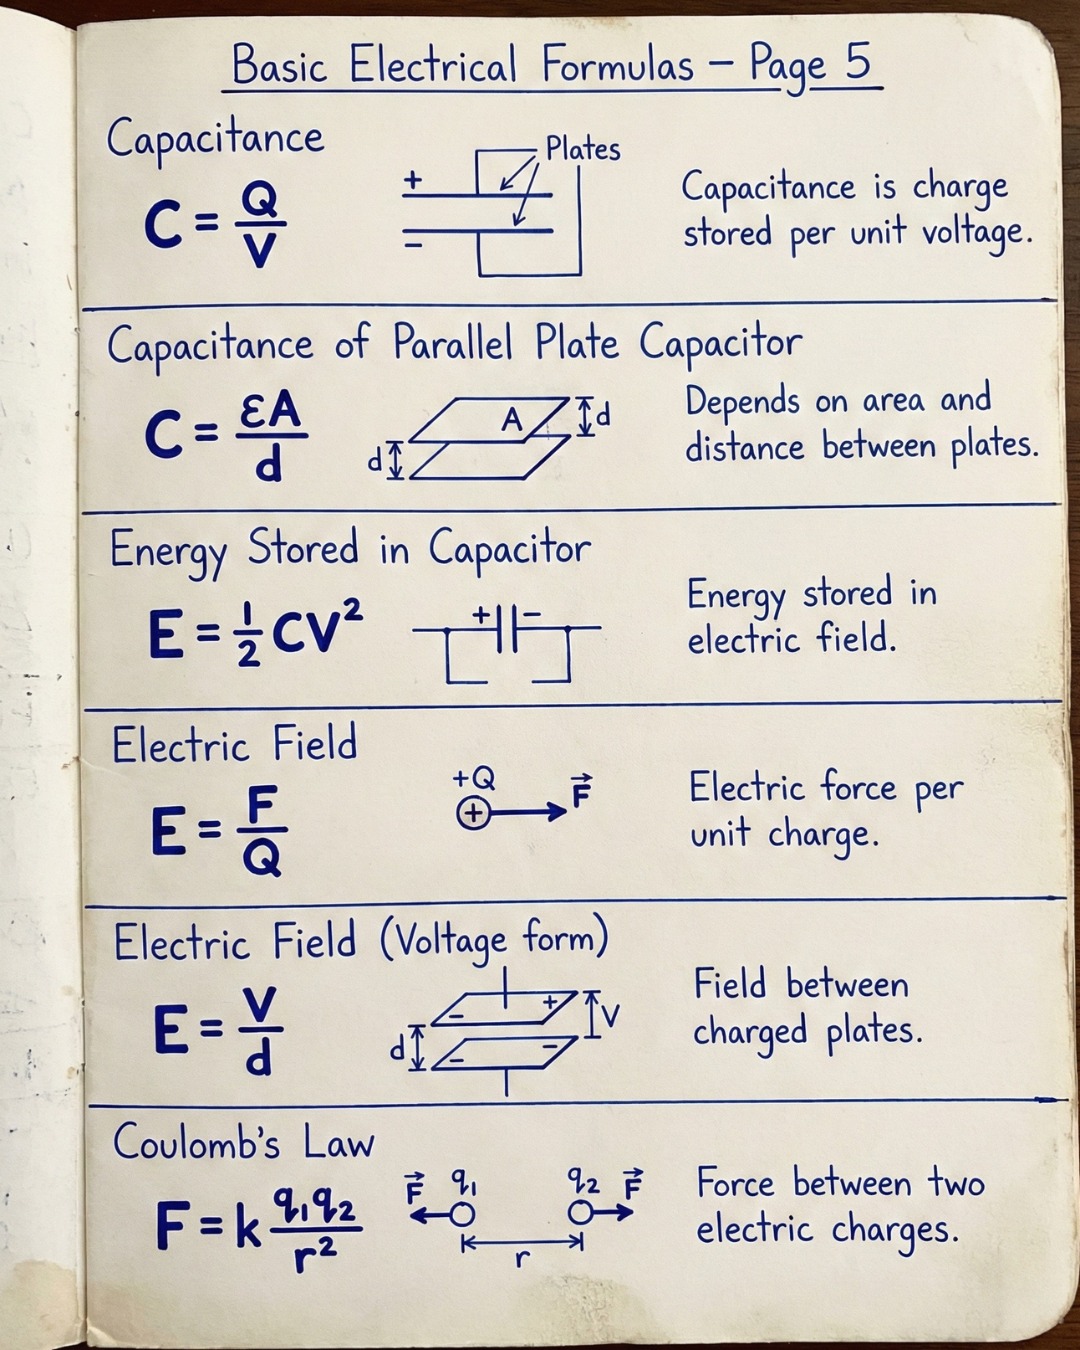 Basic Electrical Formulas – Page 5
Capacitance
C = Q/V
+
−
Plates
Capacitance is charge
stored per unit voltage.
Capacitance of Parallel Plate Capacitor
C = εA/d
A
d
d
Depends on area and
distance between plates.
Energy Stored in Capacitor
E = 1/2 CV²
+ −
Energy stored in
electric field.
Electric Field
E = F/Q
+Q
+
F⃗
Electric force per
unit charge.
Electric Field (Voltage form)
E = V/d
− +
V
d
− −
Field between
charged plates.
Coulomb's Law
F = k q₁q₂/r²
F⃗ q₁ q₂ F⃗
r
Force between two
electric charges.